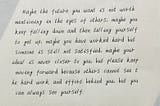 Maybe the future you want is not worth
mentioning in the eyes of others, maybe you
keep falling down and then falling yourself
to get up, maybe you have worked hard but
someone is still not satisfied, maybe your
ideal is never closer to you, but please keep
moving forward because others cannot see t
he hard work and effort behind you, but you
can always see yourself.